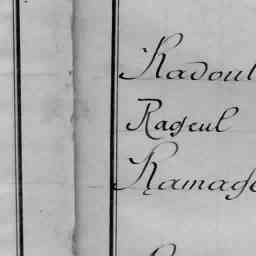 Radoul
Rageul
Ramage